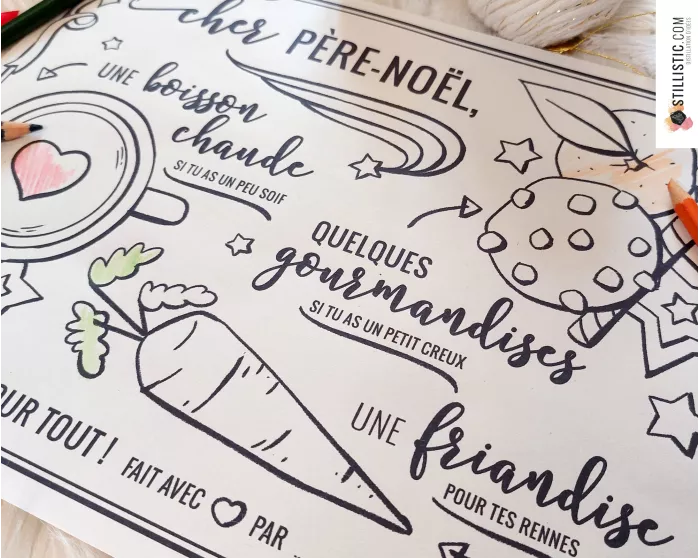 cher PÈRE-NOËL,
UNE boisson
chaude
SI TU AS UN PEU SOIF
QUELQUES
gourmandises
SI TU AS UN PETIT CREUX
UNE friandise
POUR TES RENNES
OUR TOUT !
FAIT AVEC PAR
STILLISTIC.COM